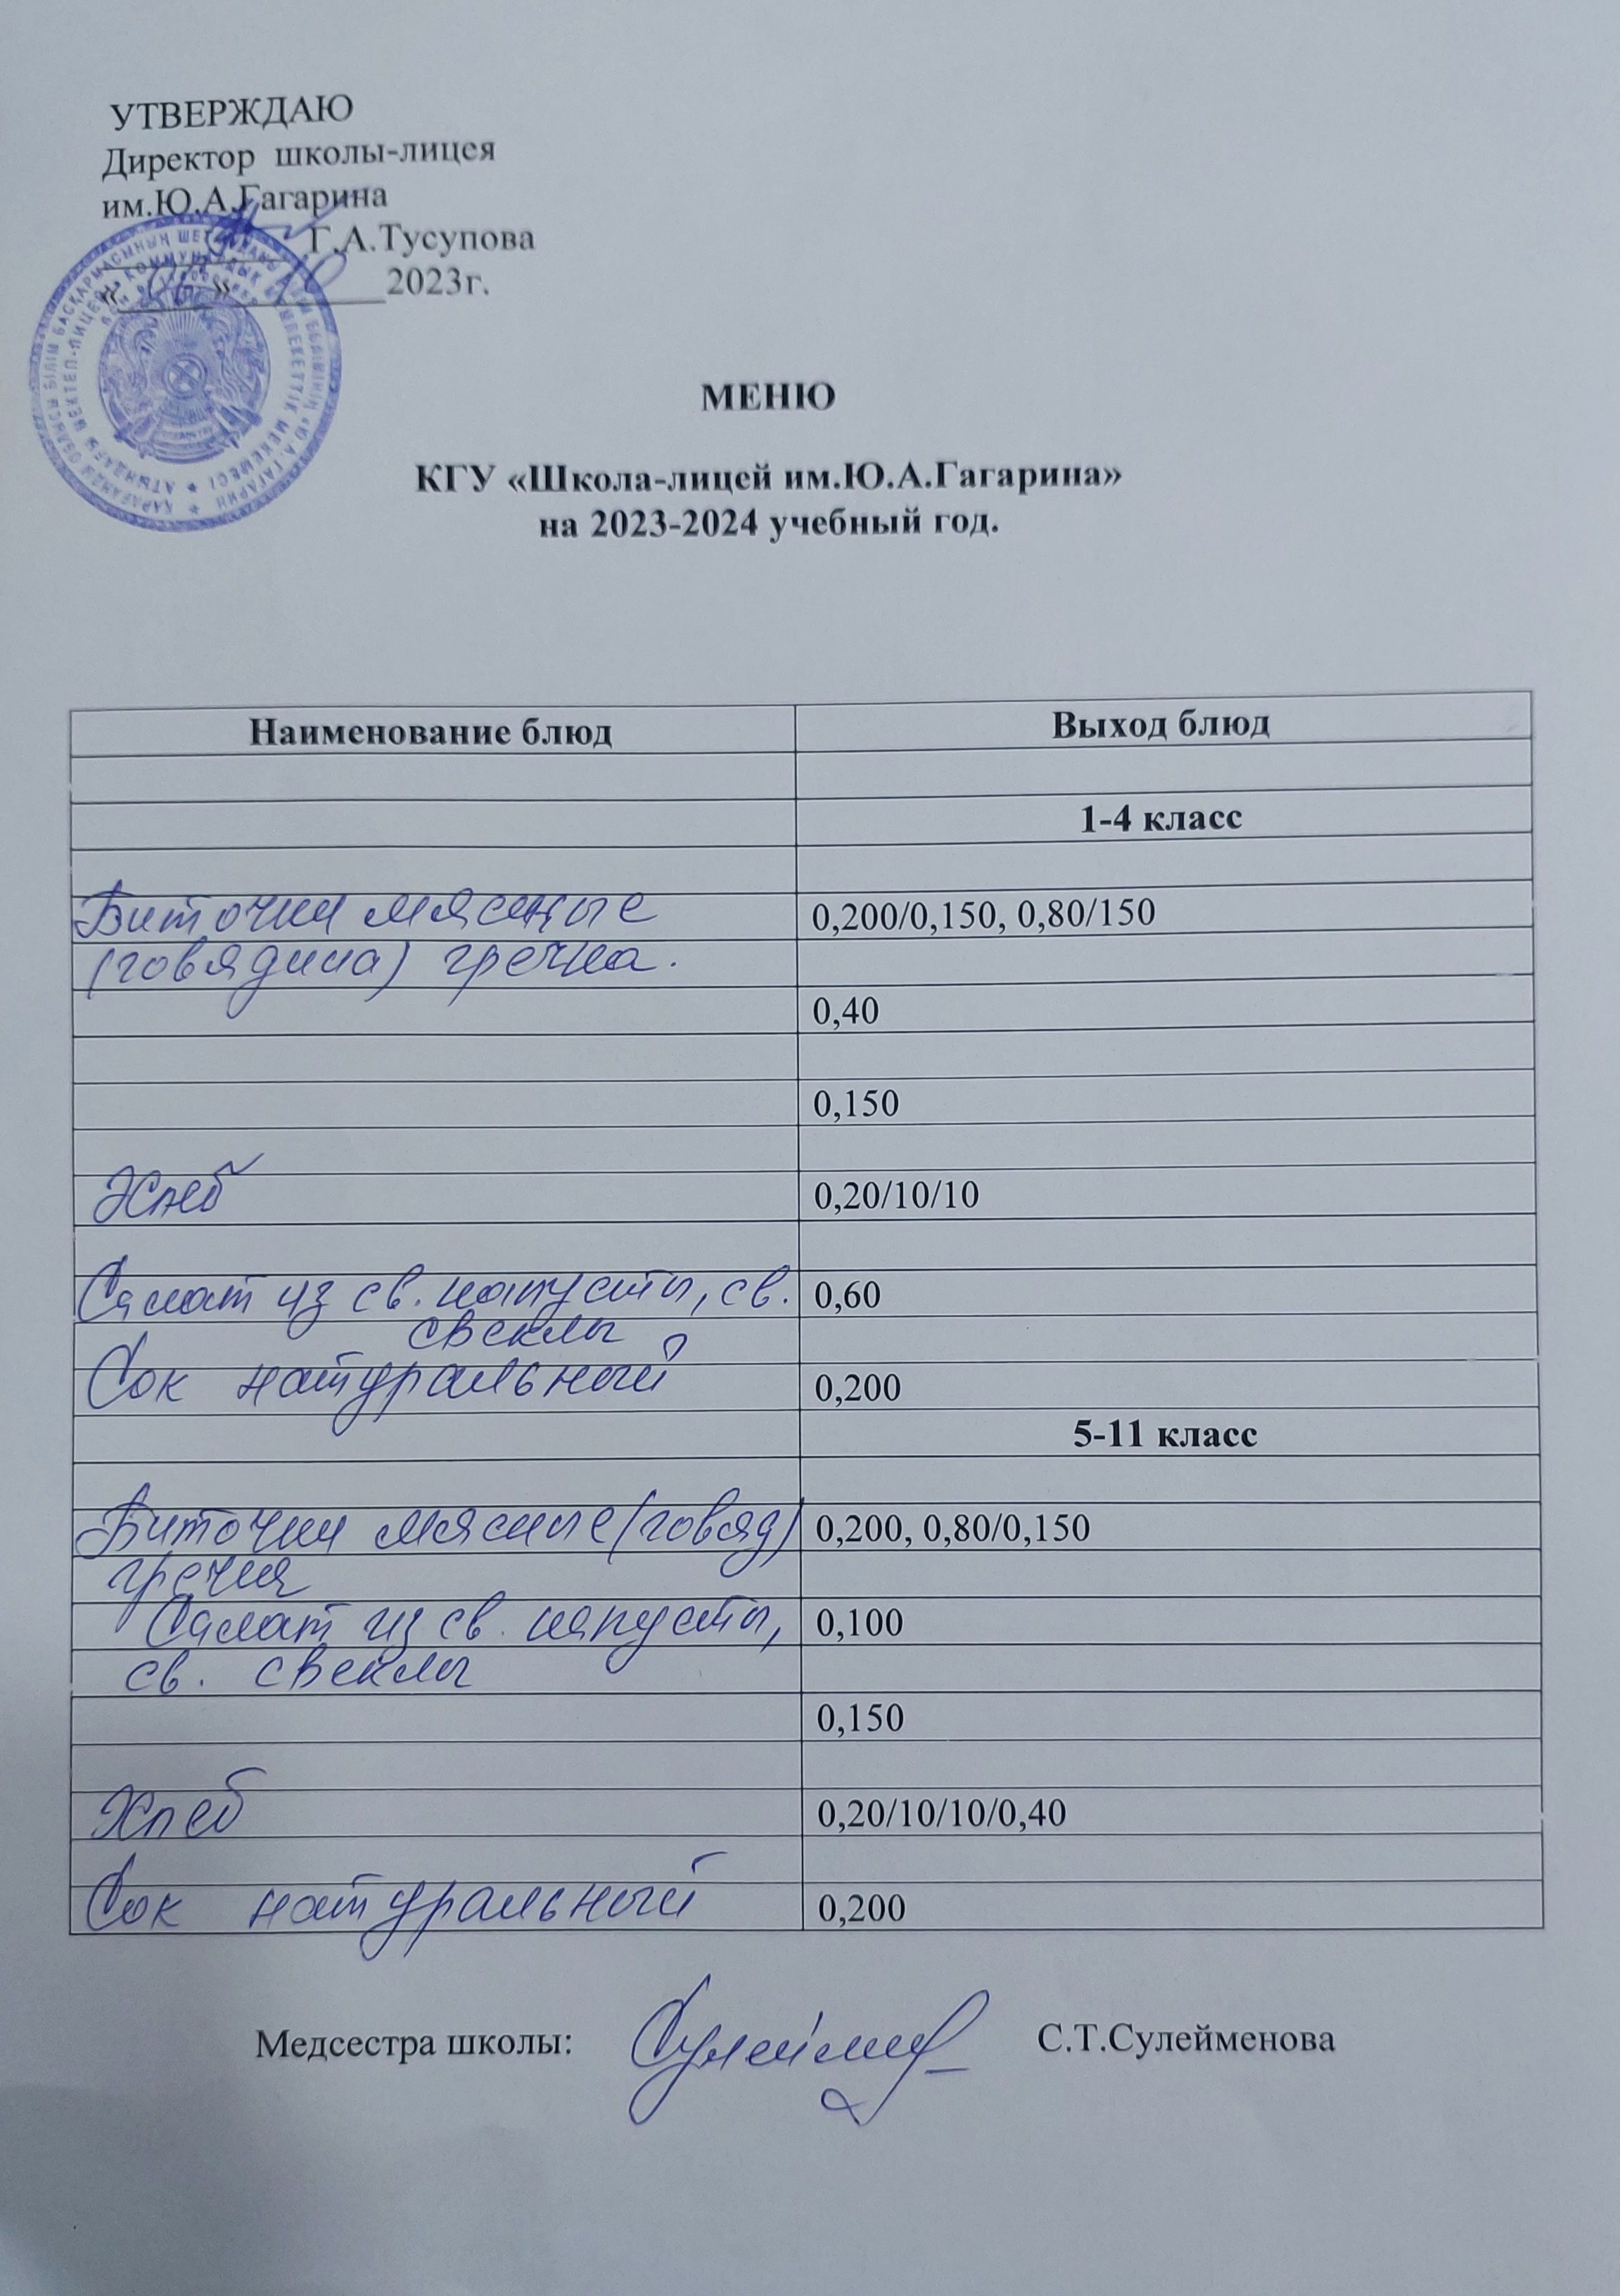 УТВЕРЖДАЮ
Директор школы-лицея
им.Ю.А.Гагарина
Г.А.Тусупова
« » 10 2023г.
МЕНЮ
КГУ «Школа-лицей им.Ю.А.Гагарина»
на 2023-2024 учебный год.
Наименование блюд Выход блюд
1-4 класс
Биточки мясные 0,200/0,150, 0,80/150
(говядина) гречка.
0,40
0,150
Хлеб 0,20/10/10
Салат из св. капусты, св. 0,60
свеклы
Сок натуральный 0,200
5-11 класс
Биточки мясные (говяд) 0,200, 0,80/0,150
гречка
Салат из св. капусты, 0,100
св. свеклы
0,150
Хлеб 0,20/10/10/0,40
Сок натуральный 0,200
Медсестра школы: С.Т.Сулейменова